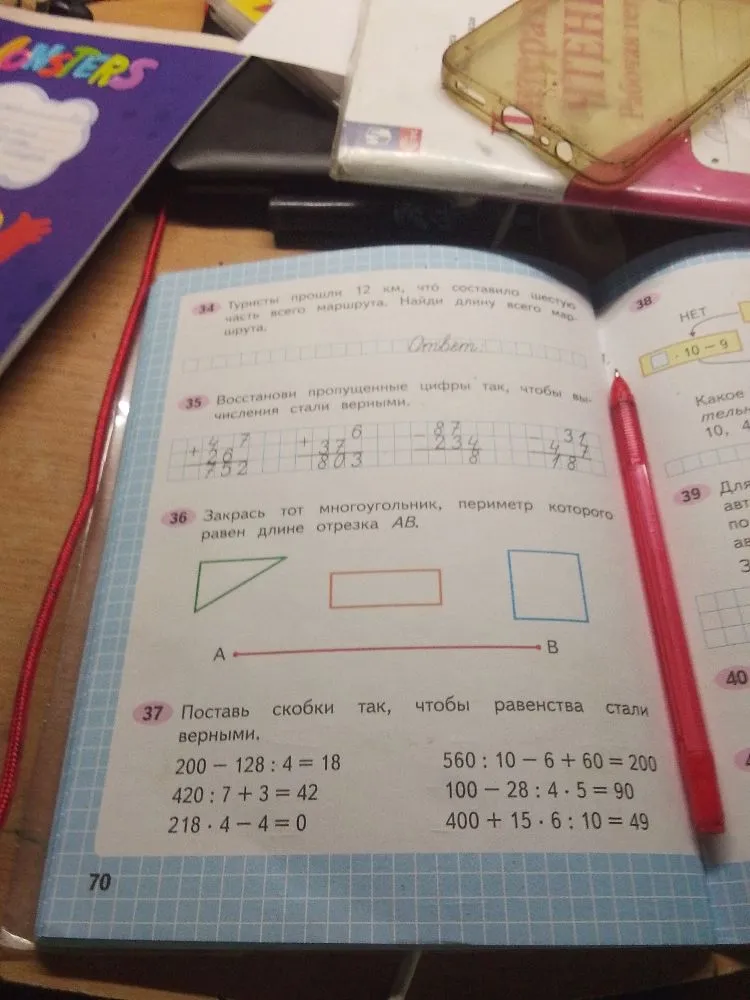 ONSTERS
ЧТЕНИ
Рабочая тет
34 Туристы прошли 12 км, что составило шестую
часть всего маршрута. Найди длину всего мар-
шрута.
Ответ:
35 Восстанови пропущенные цифры так, чтобы вы-
числения стали верными.
4 7
+ 26
752
6
+ 37
803
− 87
234
8
− 31
4 7
18
36 Закрась тот многоугольник, периметр которого
равен длине отрезка АВ.
А В
37 Поставь скобки так, чтобы равенства стали
верными.
200 − 128 : 4 = 18 560 : 10 − 6 + 60 = 200
420 : 7 + 3 = 42 100 − 28 : 4 · 5 = 90
218 · 4 − 4 = 0 400 + 15 · 6 : 10 = 49
70
38
НЕТ
· 10 − 9
Какое
тельн
10, 4
39 Для
авт
по
ав
З
40